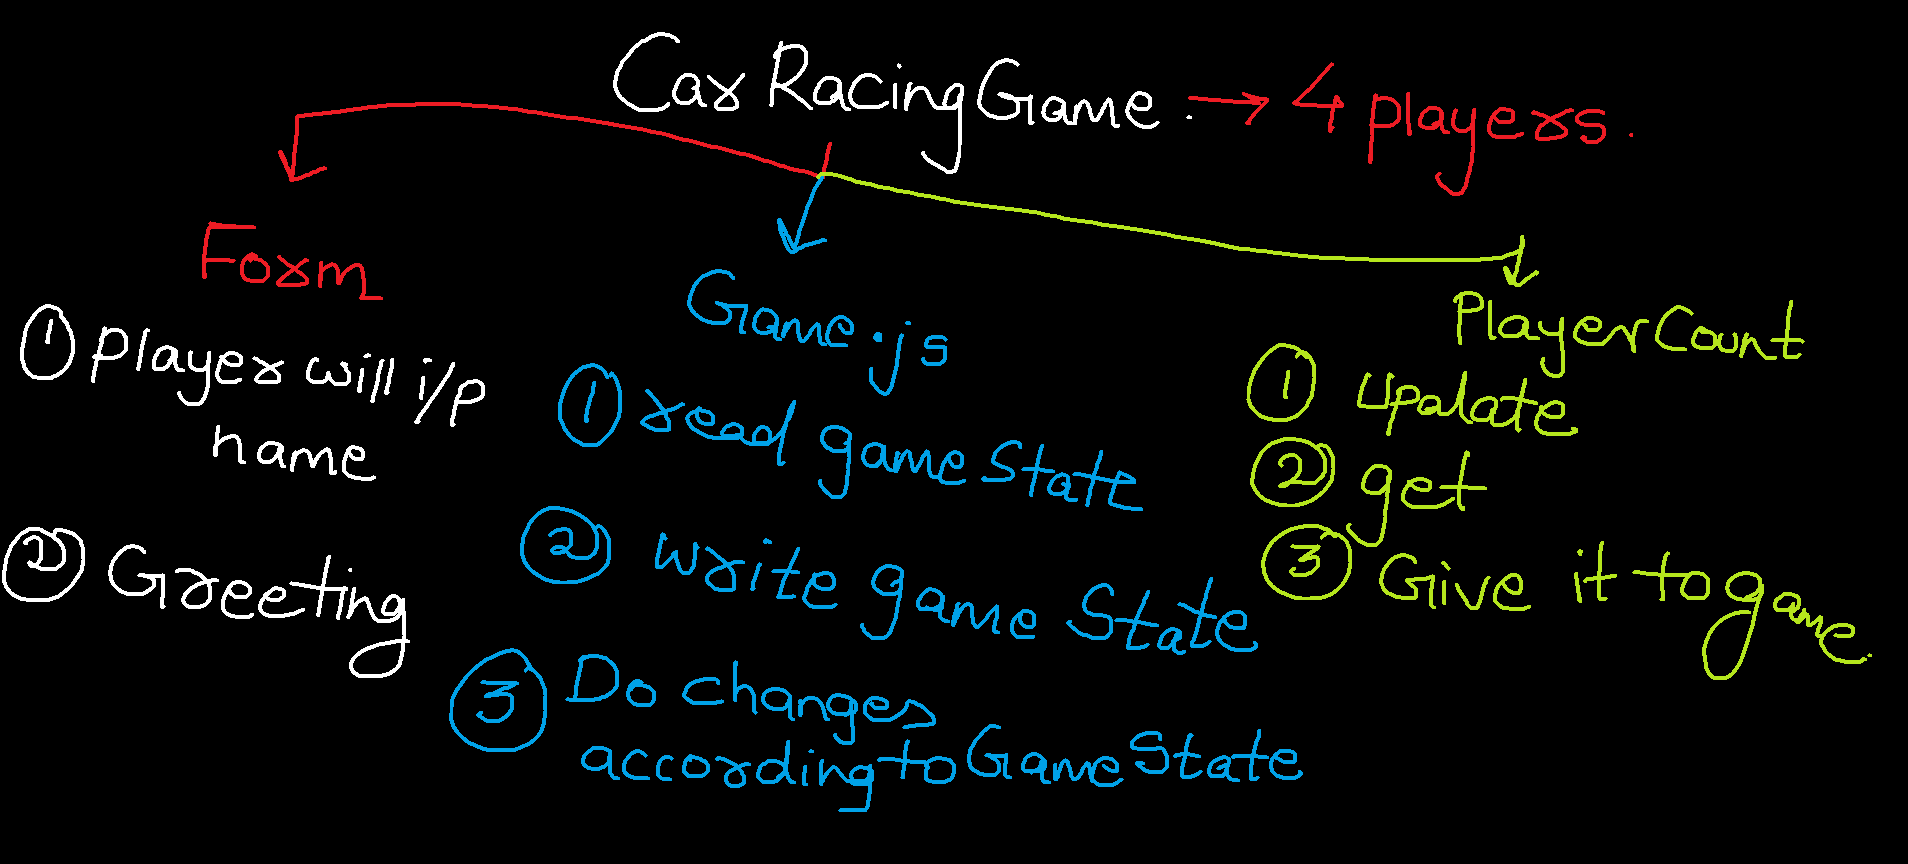 Car Racing Game. → 4 players.
Form
① Player will i/p
name
② Greeting
Game.js
① read gameState
② write game State
③ Do changes
according to GameState
PlayerCount
① update
② get
③ Give it to game.